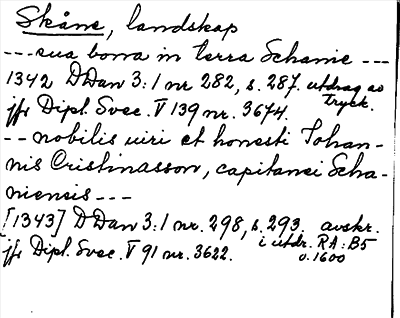 Skåne, landskap
--- sua bona in terra Schanie ---
1342 DDan 3:1 nr 282, s. 287. utdrag av
tryck.
jfr Dipl. Svec. V 139 nr. 3674.
-- nobilis uiri et honesti Johan-
nis Cristinasson, capitanei Scha-
niensis ---
[1343] DDan 3:1 nr. 298, s. 293. avskr.
i utdr. RA:B5
jfr Dipl. Svec. V 91 nr. 3622.
o. 1600